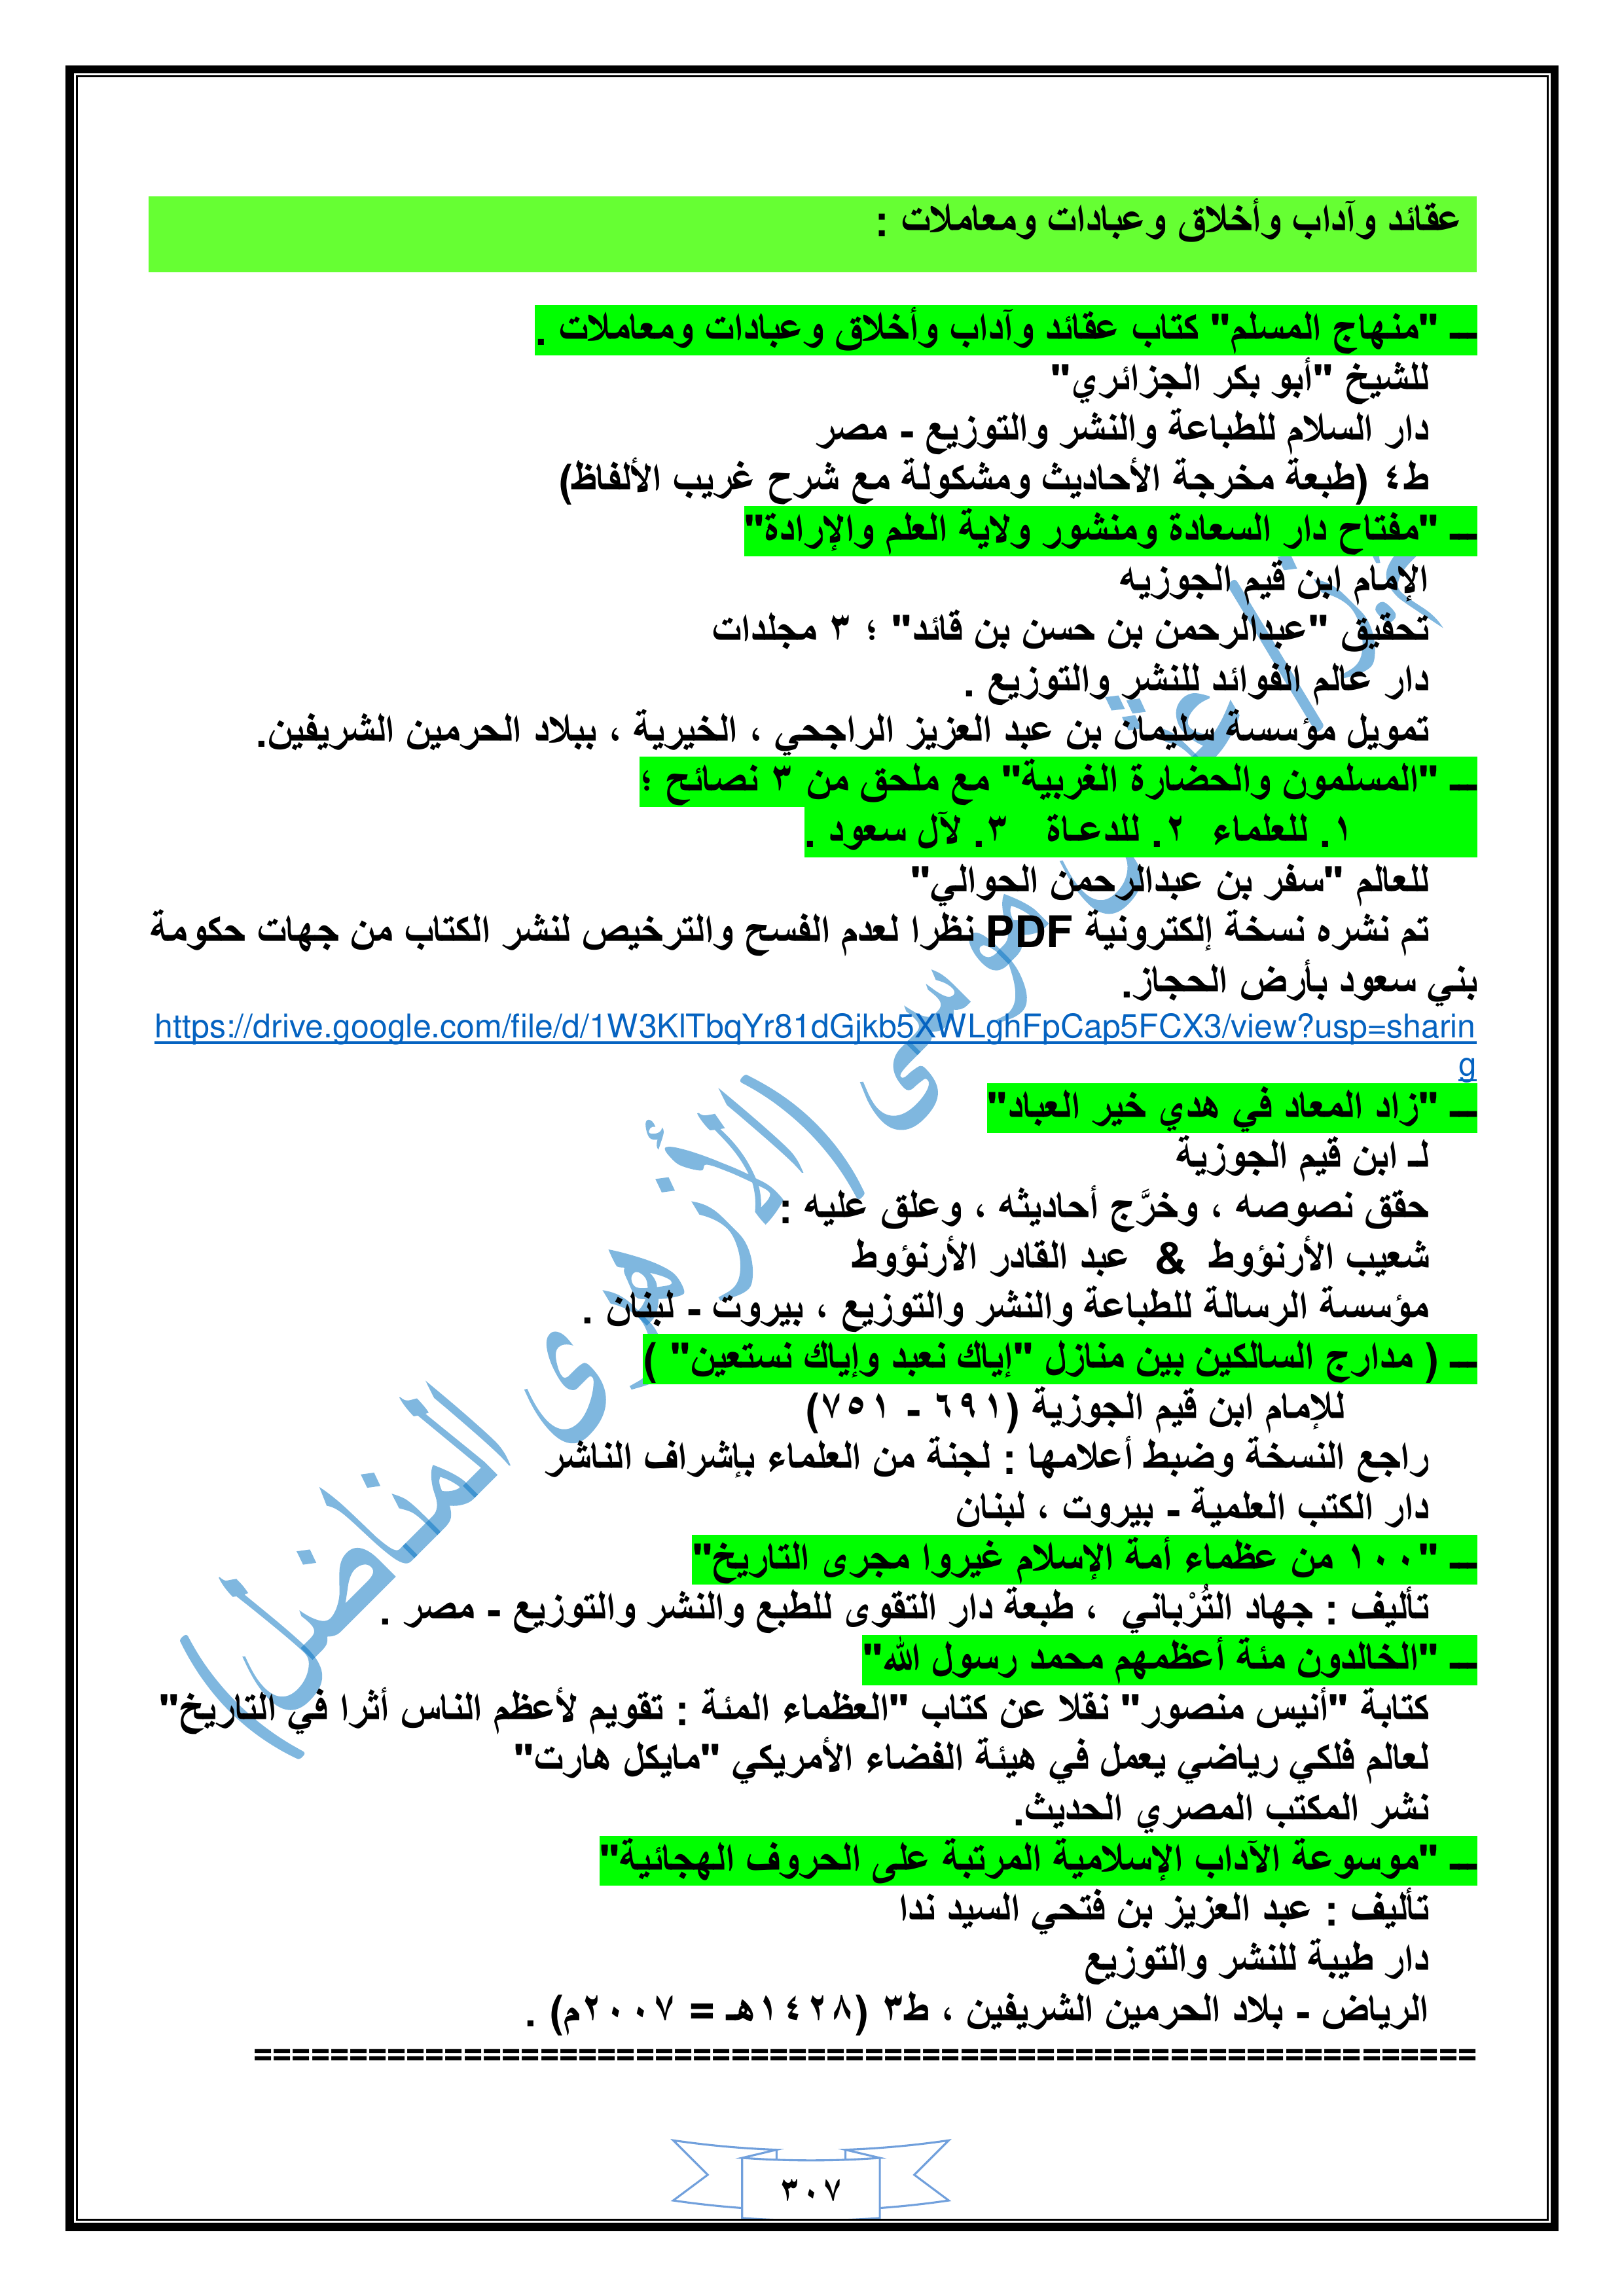 عقائد وآداب وأخلاق وعبادات ومعاملات :
ــ "منهاج المسلم" كتاب عقائد وآداب وأخلاق وعبادات ومعاملات .
للشيخ "أبو بكر الجزائري"
دار السلام للطباعة والنشر والتوزيع - مصر
ط٤ (طبعة مخرجة الأحاديث ومشكولة مع شرح غريب الألفاظ)
ــ "مفتاح دار السعادة ومنشور ولاية العلم والإرادة"
الإمام ابن قيم الجوزيه
تحقيق "عبدالرحمن بن حسن بن قائد" ؛ ٣ مجلدات
دار عالم الفوائد للنشر والتوزيع .
تمويل مؤسسة سليمان بن عبد العزيز الراجحي ، الخيرية ، ببلاد الحرمين الشريفين.
ــ "المسلمون والحضارة الغربية" مع ملحق من ٣ نصائح ؛
١. للعلماء ٢. للدعاة ٣. لآل سعود .
للعالم "سفر بن عبدالرحمن الحوالي"
تم نشره نسخة إلكترونية PDF نظرا لعدم الفسح والترخيص لنشر الكتاب من جهات حكومة
بني سعود بأرض الحجاز.
https://drive.google.com/file/d/1W3KlTbqYr81dGjkb5XWLghFpCap5FCX3/view?usp=sharin
g
ــ "زاد المعاد في هدي خير العباد"
لـ ابن قيم الجوزية
حقق نصوصه ، وخرَّج أحاديثه ، وعلق عليه :
شعيب الأرنؤوط & عبد القادر الأرنؤوط
مؤسسة الرسالة للطباعة والنشر والتوزيع ، بيروت - لبنان .
ــ ( مدارج السالكين بين منازل "إياك نعبد وإياك نستعين" )
للإمام ابن قيم الجوزية (٦٩١ - ٧٥١)
راجع النسخة وضبط أعلامها : لجنة من العلماء بإشراف الناشر
دار الكتب العلمية - بيروت ، لبنان
ــ "١٠٠ من عظماء أمة الإسلام غيروا مجرى التاريخ"
تأليف : جهاد التُرْباني ، طبعة دار التقوى للطبع والنشر والتوزيع - مصر .
ــ "الخالدون مئة أعظمهم محمد رسول الله"
كتابة "أنيس منصور" نقلا عن كتاب "العظماء المئة : تقويم لأعظم الناس أثرا في التاريخ"
لعالم فلكي رياضي يعمل في هيئة الفضاء الأمريكي "مايكل هارت"
نشر المكتب المصري الحديث.
ــ "موسوعة الآداب الإسلامية المرتبة على الحروف الهجائية"
تأليف : عبد العزيز بن فتحي السيد ندا
دار طيبة للنشر والتوزيع
الرياض - بلاد الحرمين الشريفين ، ط٣ (١٤٢٨هـ = ٢٠٠٧م) .
================================================================
٣٠٧
موسى (الأزهرى المناضل)